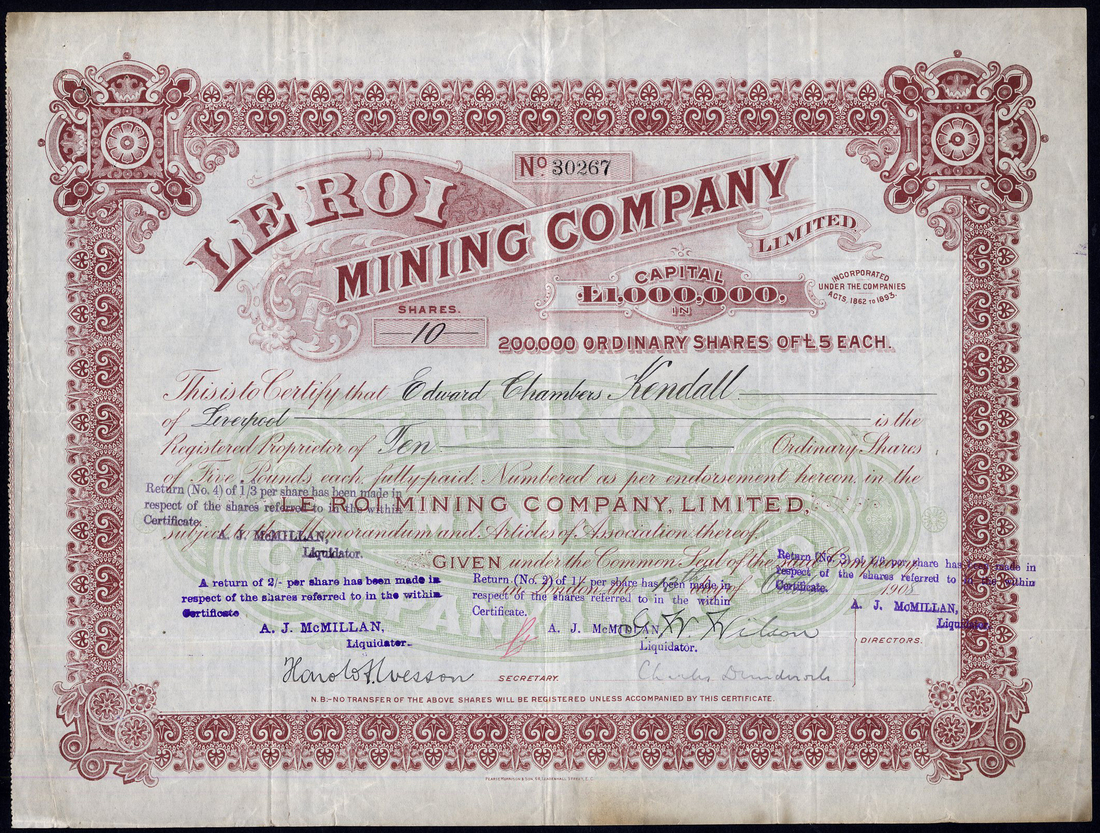 No. 30267
LE ROI
MINING COMPANY
LIMITED.
CAPITAL
£1,000,000.
IN
INCORPORATED
UNDER THE COMPANIES
ACTS, 1862 TO 1893.
SHARES.
10
200,000 ORDINARY SHARES OF £5 EACH.
This is to Certify that Edward Chambers Kendall
of Liverpool is the
Registered Proprietor of Ten Ordinary Shares
of Five Pounds each, fully paid. Numbered as per endorsement hereon, in the
LE ROI MINING COMPANY, LIMITED,
subject to the Memorandum and Articles of Association thereof.
GIVEN under the Common Seal of the said Company
at London, the day of 190
Return (No. 4) of 1/3 per share has been made in
respect of the shares referred to in the within
Certificate.
A. J. McMILLAN,
Liquidator.
A return of 2/- per share has been made in
respect of the shares referred to in the within
Certificate
A. J. McMILLAN,
Liquidator.
Return (No. 2) of 1/- per share has been made in
respect of the shares referred to in the within
Certificate.
A. J. McMILLAN,
Liquidator.
Return (No. 3) of per share has been made in
respect of the shares referred to in the within
Certificate.
A. J. McMILLAN,
Liquidator.
Wilson
DIRECTORS.
SECRETARY.
Charles
N.B:–NO TRANSFER OF THE ABOVE SHARES WILL BE REGISTERED UNLESS ACCOMPANIED BY THIS CERTIFICATE.
LE ROI
MINING
COMPANY